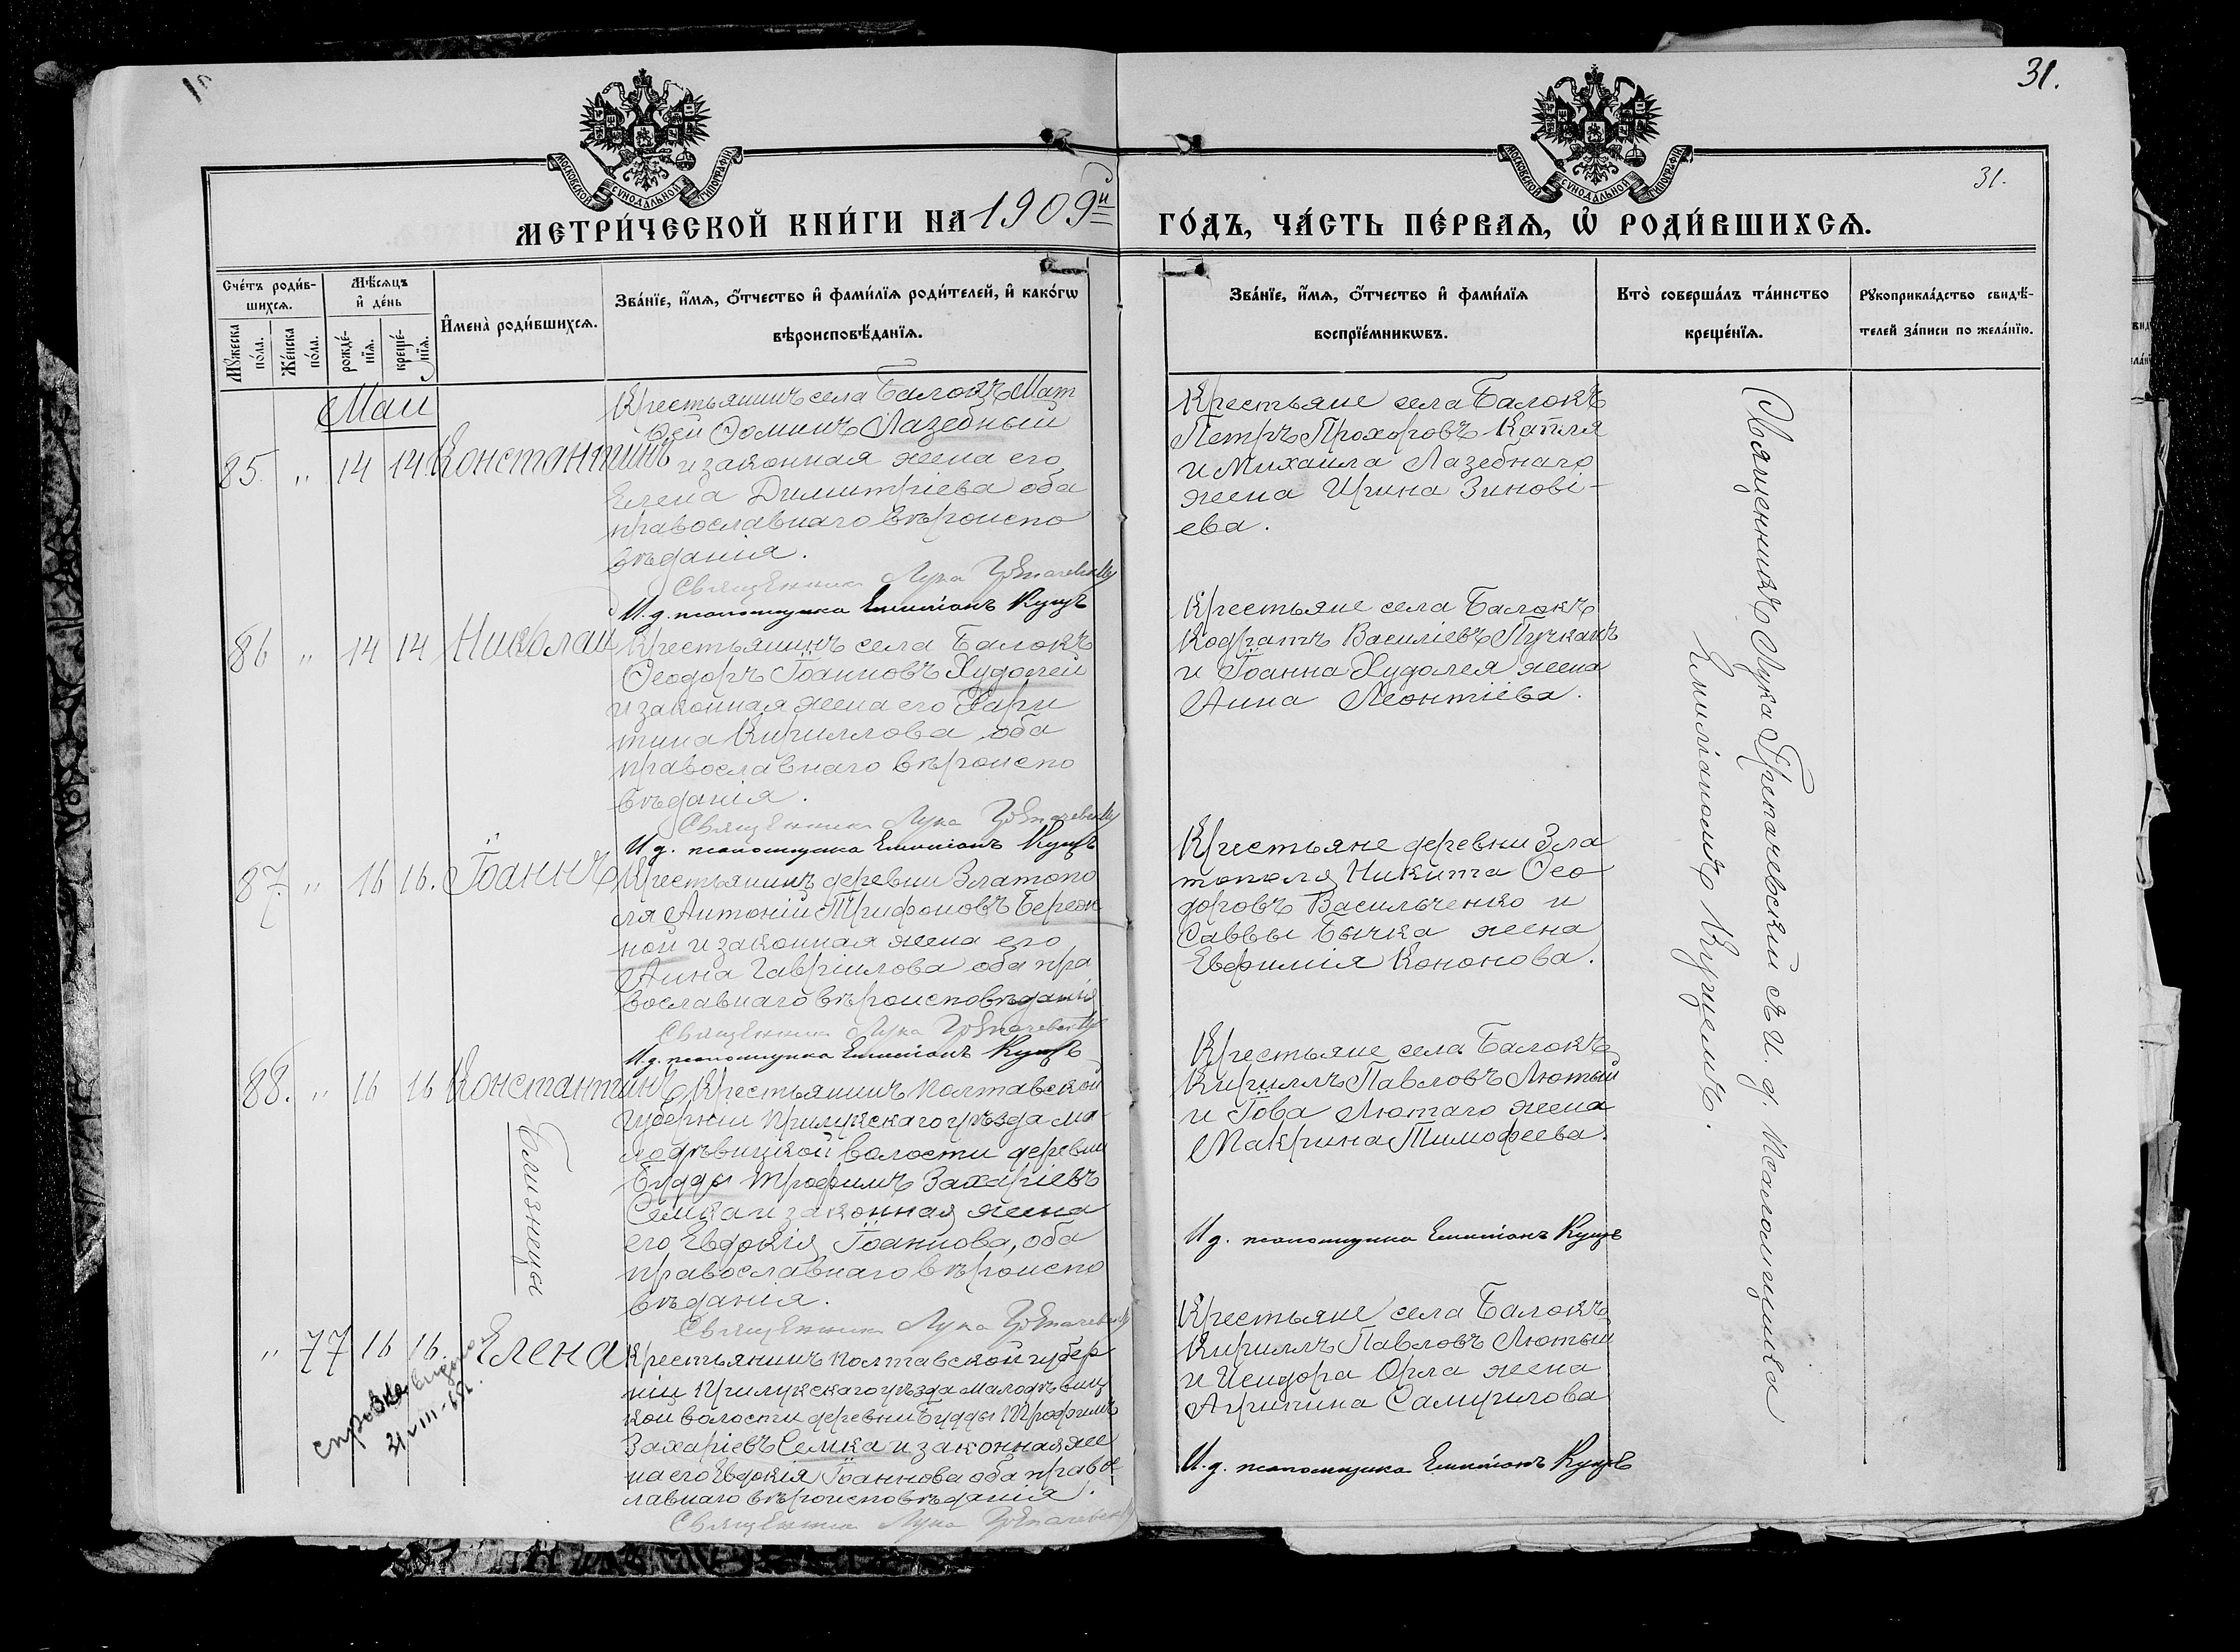 31.
31.
МОСКОВСКОЙ СѴНОДАЛЬНОЙ ТИПОГРАФІИ
МОСКОВСКОЙ СѴНОДАЛЬНОЙ ТИПОГРАФІИ
МЕТРИ́ЧЕСКОЙ КНИ́ГИ НА 1909й
ГО́ДЪ, ЧА́СТЬ ПЕ́РВАѦ, Ѡ҆ РОДИ́ВШИХСѦ.
Сче́тъ роди́в-
шихсѧ.
Мꙋ́жеска по́ла.
Же́нска по́ла.
Мѣ́сѧцъ
и҆ де́нь
рожде́-
нїѧ.
креще́-
нїѧ.
И҆мена̀ роди́вшихсѧ.
Зва́нїе, и҆́мѧ, ѻ҆́тчество и҆ фами́лїѧ роди́телей, и҆ како́гѡ
вѣроисповѣ́данїѧ.
Зва́нїе, и҆́мѧ, ѻ҆́тчество и҆ фами́лїѧ
воспрїе́мникѡвъ.
Кто̀ соверша́лъ та́инство
креще́нїѧ.
Рꙋкоприкла́дство свидѣ́-
телей за́писи по жела́нїю.
Май
85. " 14 14 Константинъ
Крестьянинъ села Балокъ Мат
ѳей Ѳоминъ Лазебный
и законная жена его
Елена Димитріева оба
православнаго вѣроиспо
вѣданія.
Священникъ Лука Гретачевскій
И. д. псаломщика Емиліанъ Куцъ
Крестьяне села Балокъ
Петръ Прохоровъ Капля
и Михаила Лазебнаго
жена Ирина Зинові-
ева.
86 " 14 14 Николай
Крестьянинъ села Балокъ
Ѳеодоръ Іоанновъ Худолей
и законная жена его Хари
тина Кириллова оба
православнаго вѣроиспо
вѣданія.
Священникъ Лука Гретачевскій
И. д. псаломщика Емиліанъ Куцъ
Крестьяне села Балокъ
Кодратъ Василіевъ
и Іоанна Худолея жена
Анна Леонтіева.
87. " 16 16. Іоаннъ
Крестьянинъ деревни Златопо
ля Антоній Трифоновъ
ной и законная жена его
Анна Гавріилова оба пра
вославнаго вѣроисповѣданія
Священникъ Лука Гретачевскій
И. д. псаломщика Емиліанъ Куцъ
Крестьяне деревни Зла
тополя Никита Ѳео
доровъ Васильченко и
Саввы Бычка жена
Евфимія Кононова.
88. " 16 16 Константинъ
Близнецы
Крестьянинъ Полтавской
губерніи Прилукскаго уѣзда Ма
лодѣвицкой волости деревни
Будды Трофимъ Захаріевъ
Семка и законная жена
его Евдокія Іоаннова, оба
православнаго вѣроиспо
вѣданія.
Священникъ Лука Гретачевскій
Крестьяне села Балокъ
Кириллъ Павловъ Лютый
и Іова Лютаго жена
Макрина Тимофеева.
И д. псаломщика Емиліанъ Куцъ
" 77 16 16. Елена
справка
Крестьянинъ Полтавской губер
ніи Прилукскаго уѣзда Малодѣвиц
кой волости деревни Будды Трофимъ
Захаріевъ Семка и законная же
на его Евдокія Іоаннова оба правос
лавнаго вѣроисповѣданія.
Священникъ Лука Гретачевскій
Крестьяне села Балокъ
Кириллъ Павловъ Лютый
и Исидора Орла жена
Агрипина Самуилова
И. д. псаломщика Емиліанъ Куцъ
Священникъ Лука Гретачевскій съ И. д. Псаломщика
Емиліаномъ Куцемъ.